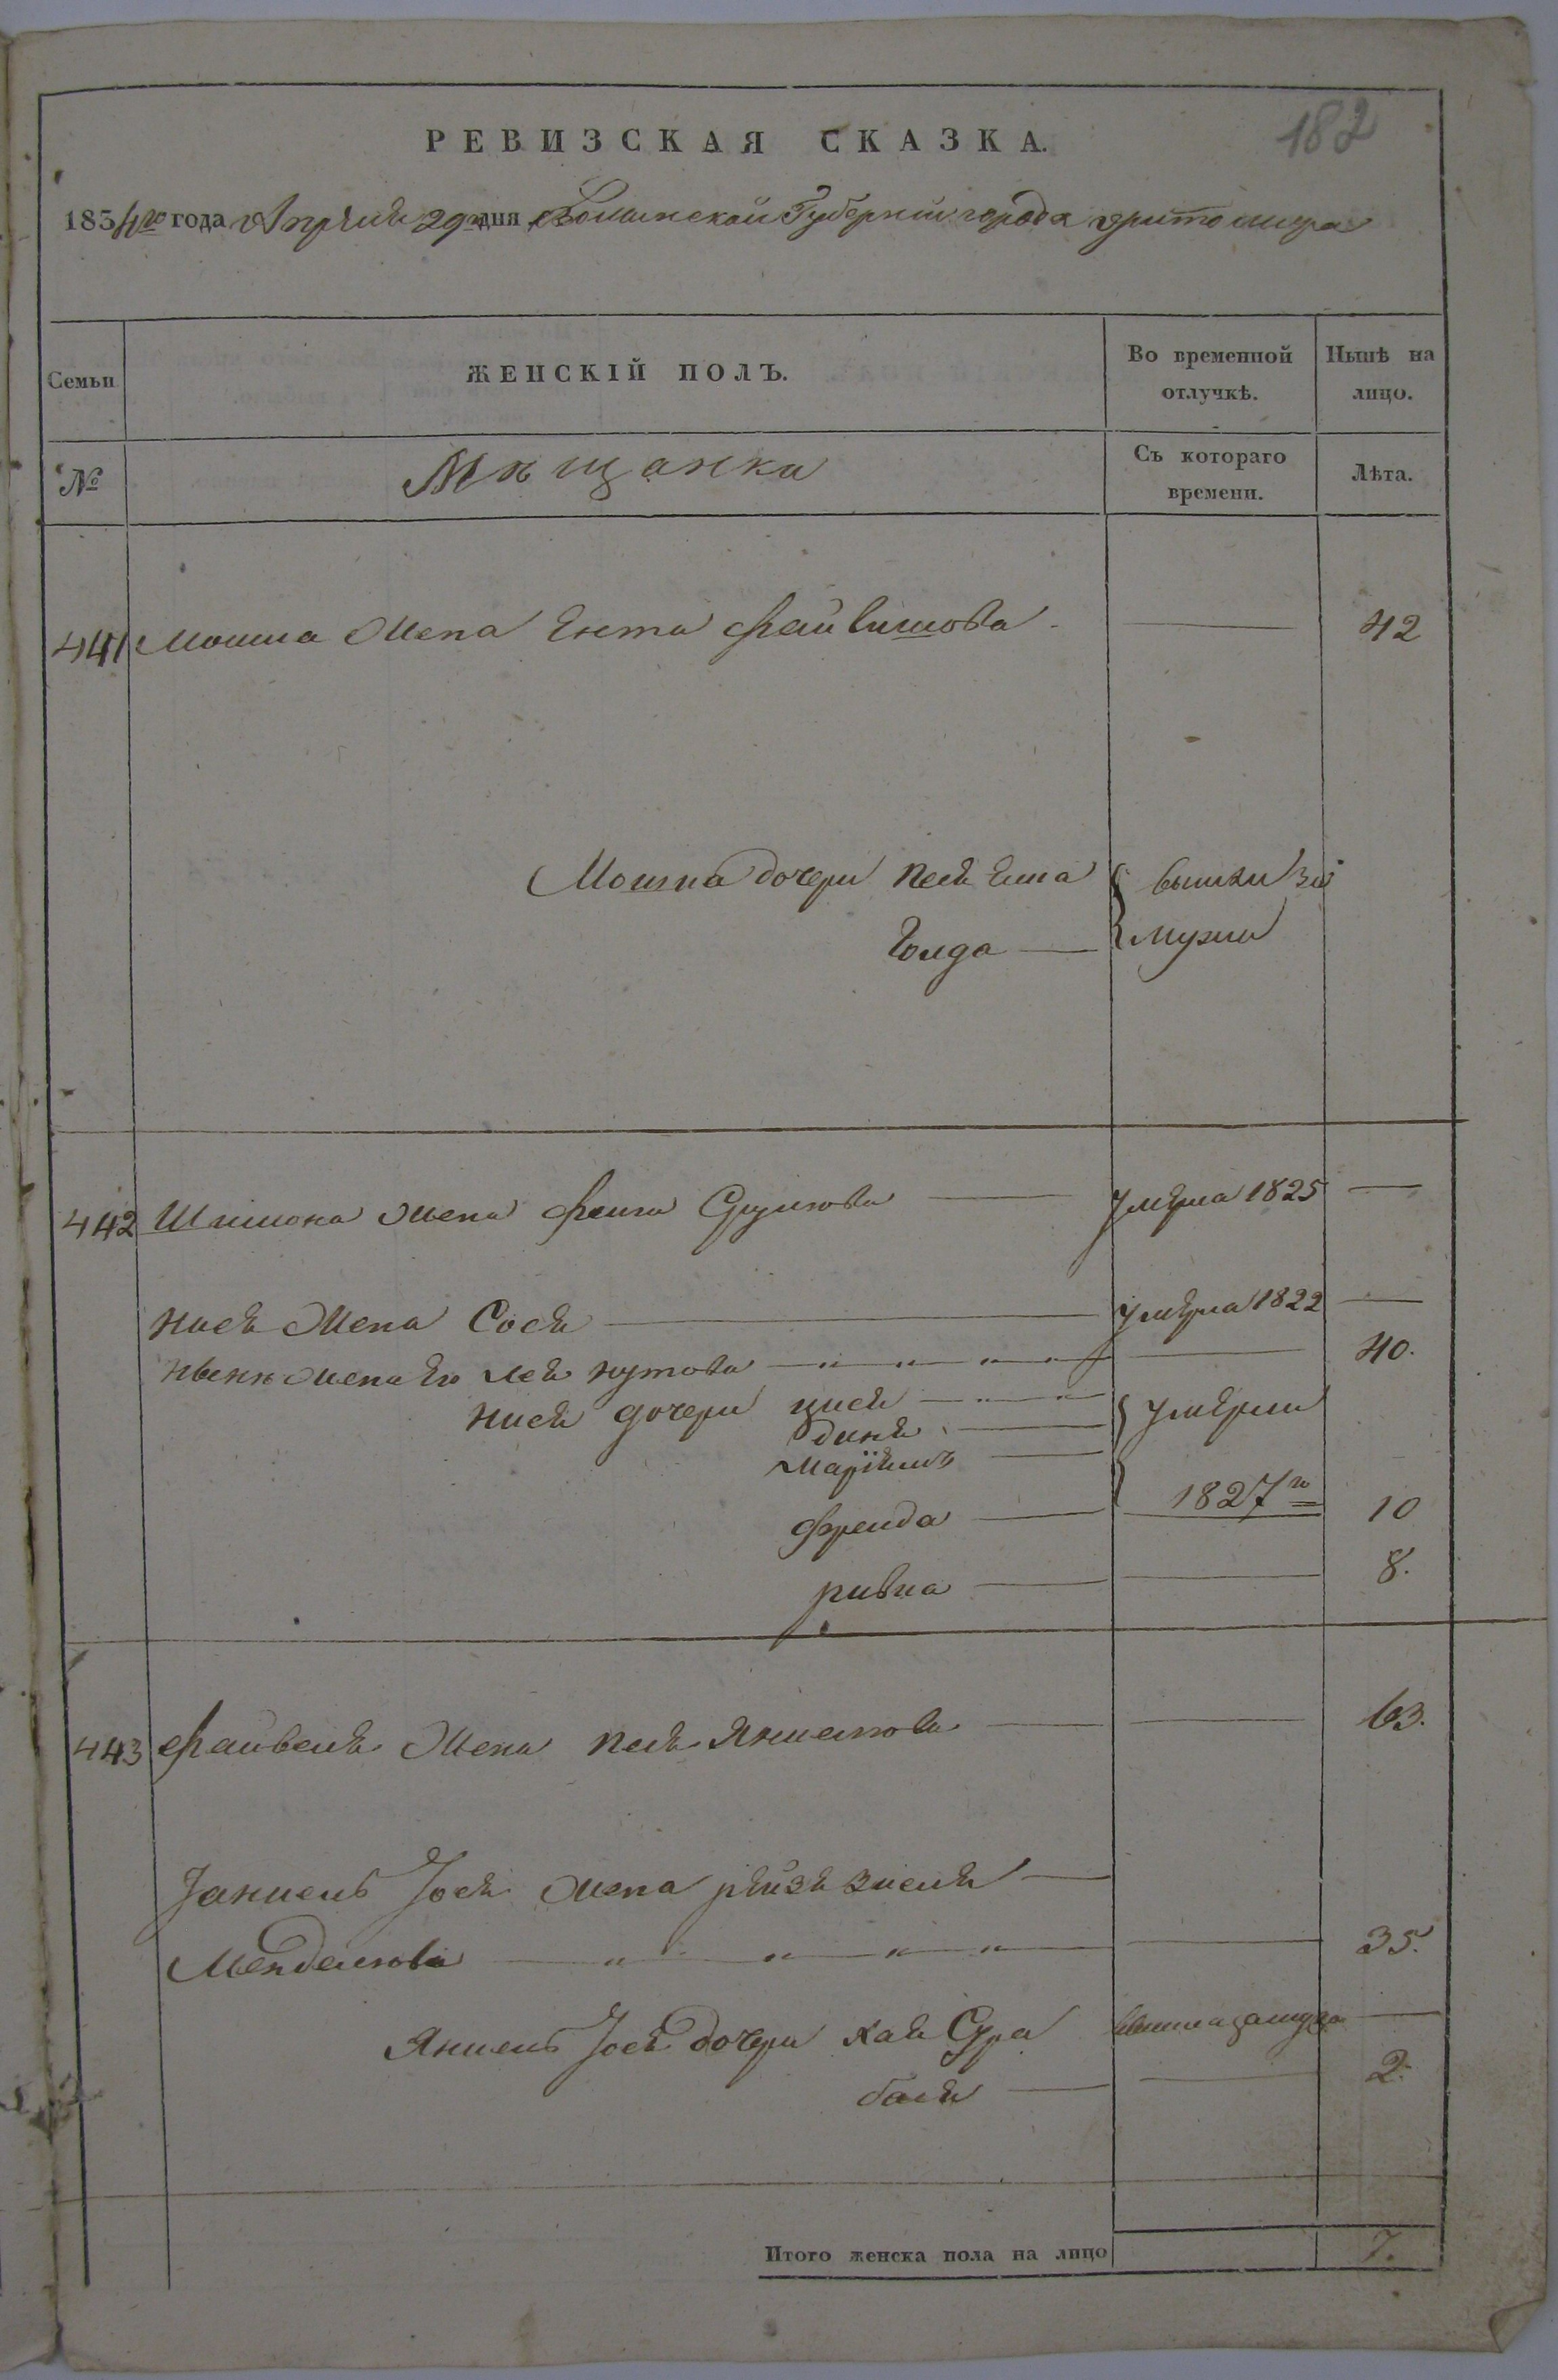 182
РЕВИЗСКАЯ СКАЗКА.
1834го года Апреля 29 дня Волынской Губернии города Житомира
Семьи
ЖЕНСКІЙ ПОЛЪ.
Во временной отлучкѣ.
Нынѣ на лицо.
№
Мѣщанки
Съ котораго времени.
Лѣта.
441 Мошка Жена Ента Файвишова — 42
Мошка дочери Песя Ешa вышли за
Голда — мужи
442 Шлиома Жена Фейга Срулова — умерла 1825 —
Нися Жена Сося — умерла 1822 —
Жена Его Лея Нутова — 40.
Нися дочери Цися — умерли
Диня —
Маріемъ —
1827го
Фрейда — 10
Ривка — 8.
443 Файвеля Жена Песя Янкелева — 63.
Янкель Іося Жена Рейзя
Менделева — 35.
Янкель Іося дочери Хая Сура вышла замужъ —
Бася — 2.
Итого женска пола на лицо 7.